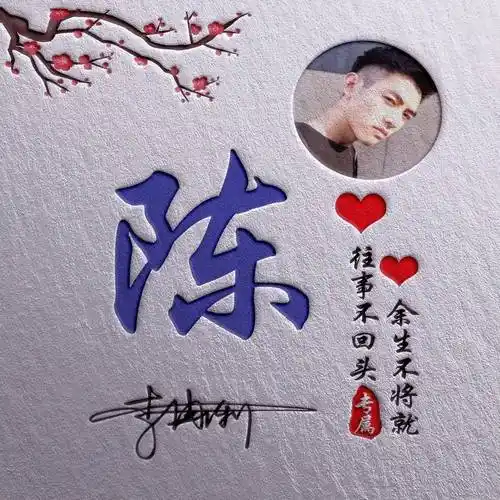 陈
往事不回头
余生不将就
专属